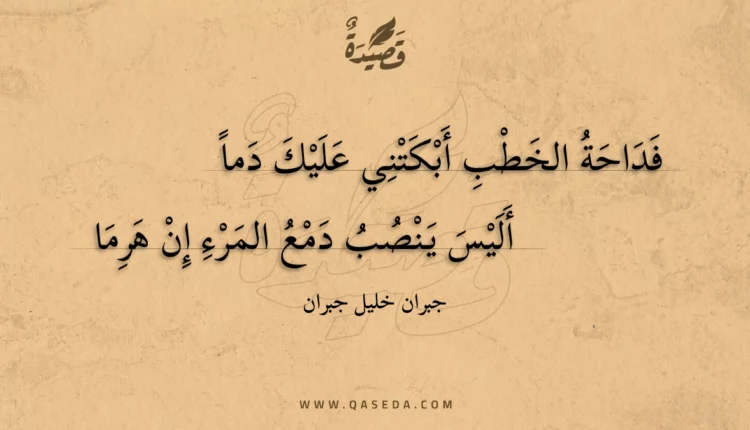 قَصِيْدَةٌ
فَدَاحَةُ الخَطْبِ أَبْكَتْنِي عَلَيْكَ دَماً
أَلَيْسَ يَنْصُبُ دَمْعُ المَرْءِ إِنْ هَرِمَا
جبران خليل جبران
WWW.QASEDA.COM